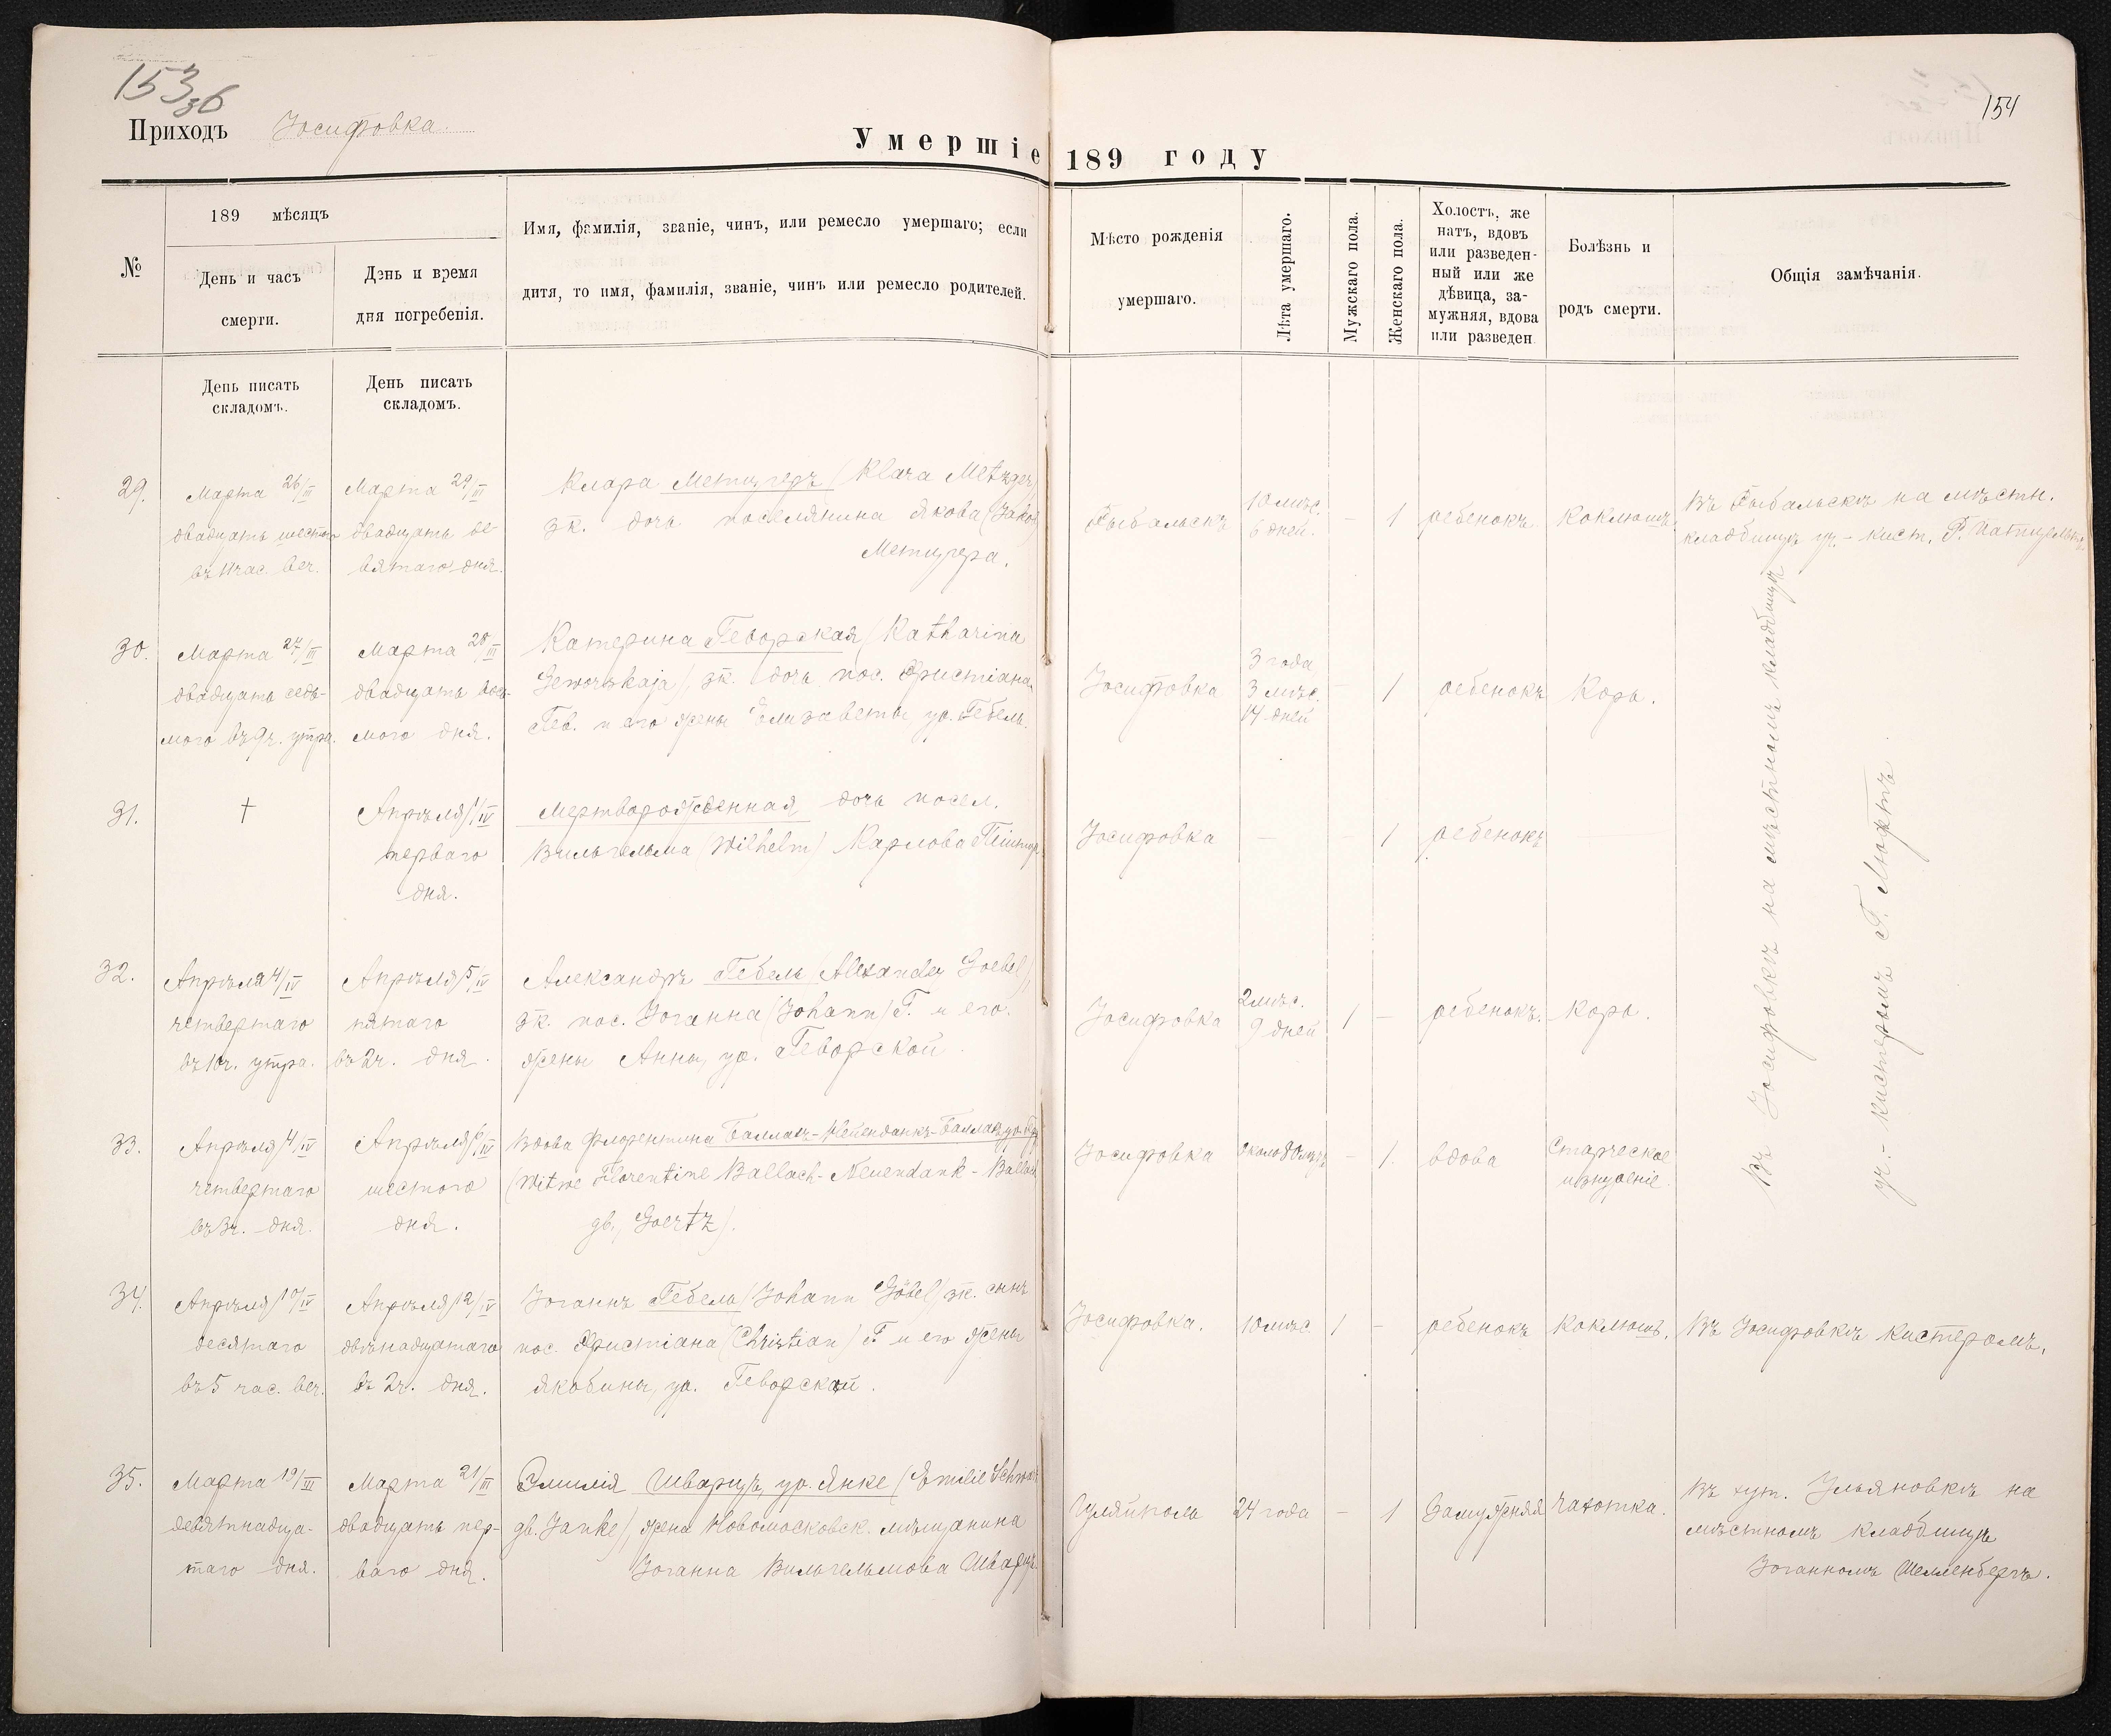 153 зб
154
Приходъ Іосифовка.
Умершіе 189 году
№
189 мѣсяцъ
День и часъ
смерти.
День и время
дня погребенія.
Имя, фамилія, званіе, чинъ, или ремесло умершаго; если
дитя, то имя, фамилія, званіе, чинъ или ремесло родителей.
Мѣсто рожденія
умершаго.
Лѣта умершаго.
Мужскаго пола.
Женскаго пола.
Холостъ, же
натъ, вдовъ
или разведен-
ный или же
дѣвица, за-
мужняя, вдова
или разведен
Болѣзнь и
родъ смерти.
Общія замѣчанія.
День писать
складомъ.
День писать
складомъ.
29.
Марта 26/III
двадцать шестого
въ 11 час. веч.
Марта 29/III
двадцать де-
вятаго дня.
Клара Метцгеръ (Klara Metzger)
зк. дочь поселянина Якова (Jakob)
Метцгера.
Рыбальскъ
10 мѣс.
6 дней.
–
1
ребенокъ
Коклюшъ.
Въ Рыбальскѣ на мѣстн.
кладбищѣ уч.- кист.
30.
Марта 27/III
двадцать седь-
мого въ 9 ч. утра.
Марта 28/III
двадцать вось-
мого дня.
Катерина Геворская (Katharina
Geworskaja), зк. дочь пос. Христіана
Гев. и его жены Елизаветы ур. Гебель.
Іосифовка
3 года
3 мѣс.
14 дней
–
1
ребенокъ
Корь.
31.
†
Апрѣля 1/IV
перваго
дня.
Мертворожденная дочь посел.
Вильгельма (Wilhelm) Карлова
Іосифовка
–
–
1
ребенокъ
32.
Апрѣля 4/IV
четвертаго
въ 10 ч. утра.
Апрѣля 5/IV
пятаго
въ 2 ч. дня.
Александръ Гебель (Alexander Goebel),
зк. пос. Іоганна (Johann) Г. и его
жены Анны, ур. Геворской.
Іосифовка
2 мѣс.
9 дней
1
–
ребенокъ.
Корь.
33.
Апрѣля 4/IV
четвертаго
въ 3 ч. дня.
Апрѣля 6/IV
шестого
дня.
Вдова Флорентина Баллахъ-Нейенданкъ-Баллахъ, ур.
(Witwe Florentine Ballach-Neuendank-Ballach
gb. Goertz).
Іосифовка
около 80 лѣтъ
–
1.
вдова
Старческое
изнуреніе.
Въ Іосифовкѣ на мѣстномъ кладбищѣ
уч.- кистеромъ Г.
34.
Апрѣля 10/IV
десятаго
въ 5 час. веч.
Апрѣля 12/IV
двѣнадцатаго
въ 2 ч. дня.
Іоганнъ Гебель (Johann Göbel) зк. сынъ
пос. Христіана (Christian) Г. и его жены
Якобины, ур. Геворской.
Іосифовка.
10 мѣс.
1
–
ребенокъ
Коклюшъ.
Въ Іосифовкѣ Кистеромъ.
35.
Марта 19/III
девятнадца-
таго дня.
Марта 21/III
двадцать пер-
ваго дня.
Эмилія Шварцъ, ур. Янке (Emilie Schwarz
gb. Janke), жена Новомосковск. мѣщанина
Іоганна Вильгельмова Шварцъ.
Гуляйполь
24 года
–
1
Замужняя
Чахотка.
Въ хут. Ульяновкѣ на
мѣстномъ кладбищѣ
Іоганномъ Шелленбергъ.